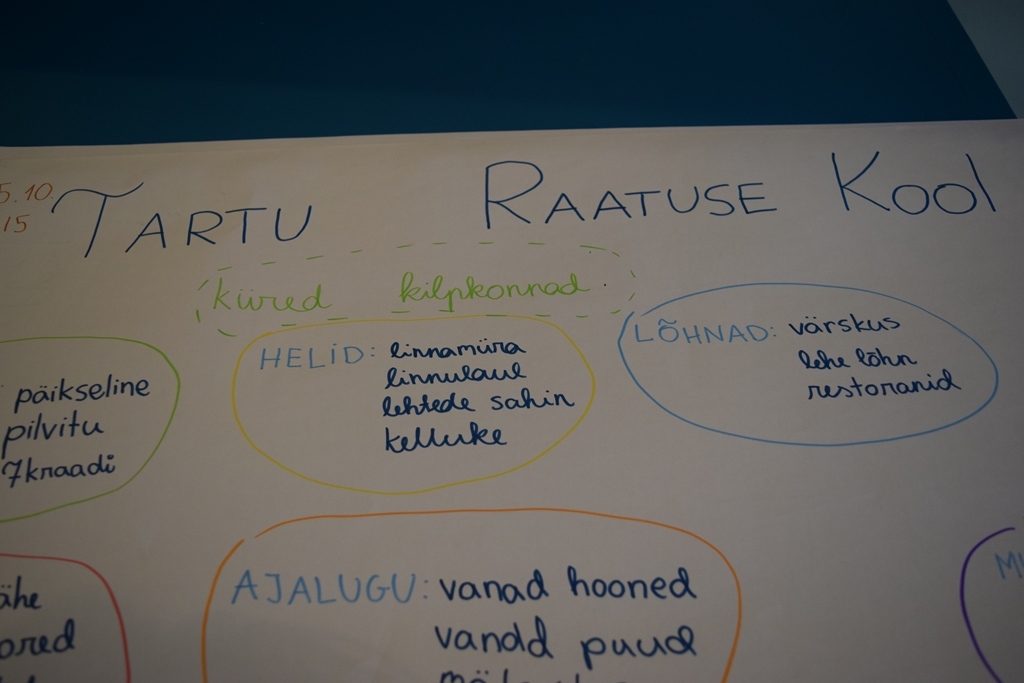 5.10.
15
TARTU RAATUSE KOOL
kiired kilpkonnad
päikseline
pilvitu
7kraadi
HELID: linnamüra
linnulaul
lehtede sahin
kelluke
LÕHNAD: värskus
lehe lõhn
restoranid
AJALUGU: vanad hooned
vanad puud